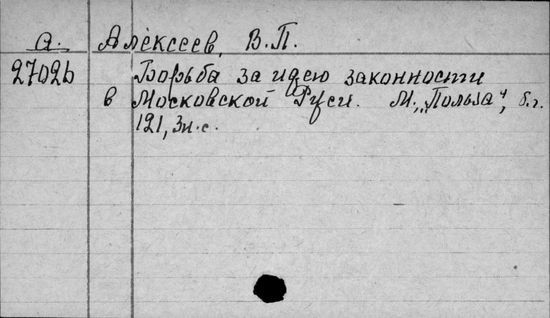 а. Алексеев, В.П.
27026 Борьба за идею законности
в Московской Руси. М., „Польза“, б.г.
121, 3н.с.